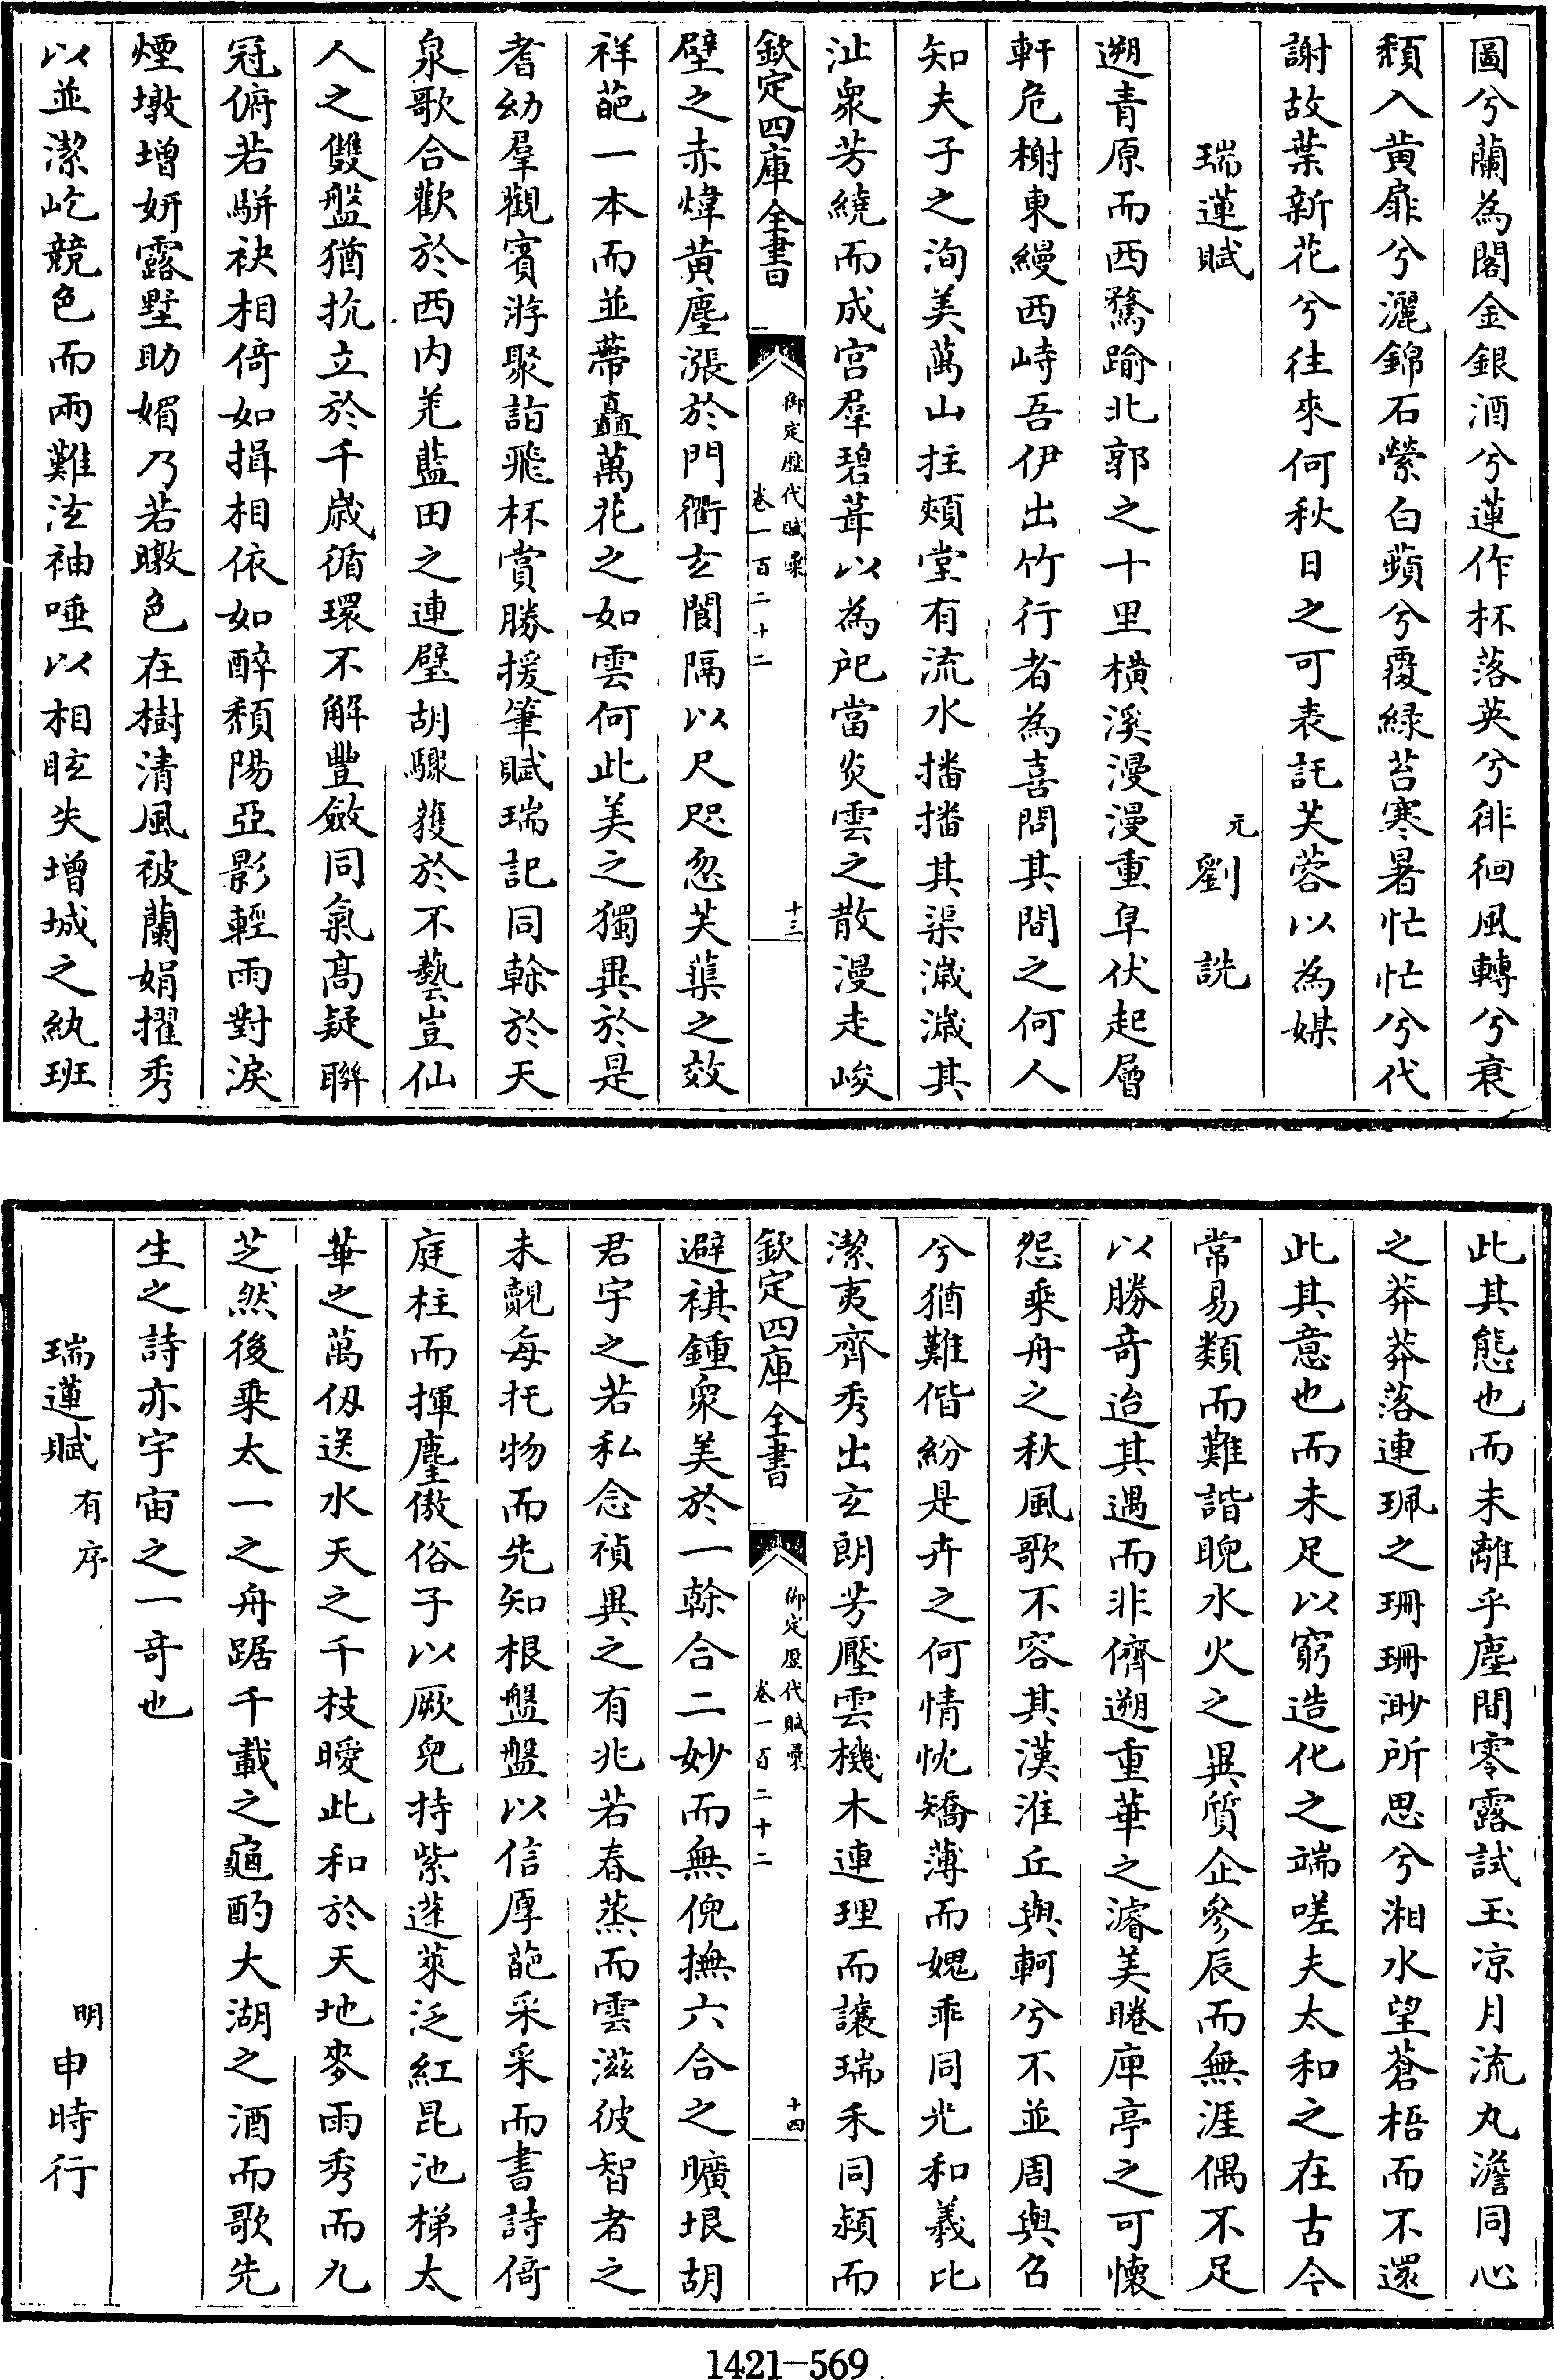 圖兮蘭為閣金銀酒兮蓮作杯落英兮徘徊風轉兮衰
頹入黃扉兮灑錦石縈白蘋兮覆綠苔寒暑忙忙兮代
謝故葉新花兮往來何秋日之可哀託芙蓉以為媒
瑞蓮賦 元劉詵
遡青原而西騖踰北郭之十里橫溪漫漫重阜伏起層
軒危榭東縵西峙吾伊出竹行者為喜問其間之何人
知夫子之洵美萬山拄頰堂有流水播播其渠濊濊其
沚衆芳繞而成宮羣碧葺以為戺當炎雲之散漫走峻
欽定四庫全書 御定歷代賦彙 卷一百二十二 十三
壁之赤煒黃塵漲於門衢玄閬隔以尺咫忽芙蕖之效
祥葩一本而並蔕矗萬花之如雲何此美之獨異於是
耆幼羣觀賓游聚詣飛杯賞勝援筆賦瑞記同榦於天
泉歌合歡於西內羌藍田之連璧胡驟獲於不藝豈仙
人之雙盤猶抗立於千歲循環不解豐斂同氣高疑聯
冠俯若駢袂相倚如揖相依如醉頹陽亞影輕雨對淚
煙墩增妍露墅助媚乃若暾色在樹清風被蘭娟擢秀
以並潔屹競色而兩難泫袖唾以相眩失增城之紈班
此其態也而未離乎塵間零露試玉凉月流丸澹同心
之莽莽落連珮之珊珊渺所思兮湘水望蒼梧而不還
此其意也而未足以窮造化之端嗟夫太和之在古今
常易類而難諧睨水火之異質企參辰而無涯偶不足
以勝奇迨其遇而非儕遡重華之濬美睠庫亭之可懷
怨乘舟之秋風歌不容其漢淮丘與軻兮不並周與召
兮猶難偕紛是卉之何情忱矯薄而媿乖同光和羲比
潔夷齊秀出玄朗芳壓雲機木連理而讓瑞禾同潁而
欽定四庫全書 御定歷代賦彙 卷一百二十二 十四
避祺鍾衆美於一榦合二妙而無倪撫六合之曠垠胡
君宇之若私念禎異之有兆若春蒸而雲滋彼智者之
未覿每托物而先知根盤盤以信厚葩采采而書詩倚
庭柱而揮塵傲俗子以厥兒持紫蓬萊泛紅昆池梯太
華之萬仭送水天之千枝曖此和於天地麥雨秀而九
芝然後乘太一之舟踞千載之龜酌大湖之酒而歌先
生之詩亦宇宙之一奇也
瑞蓮賦 有序 明申時行
1421-569